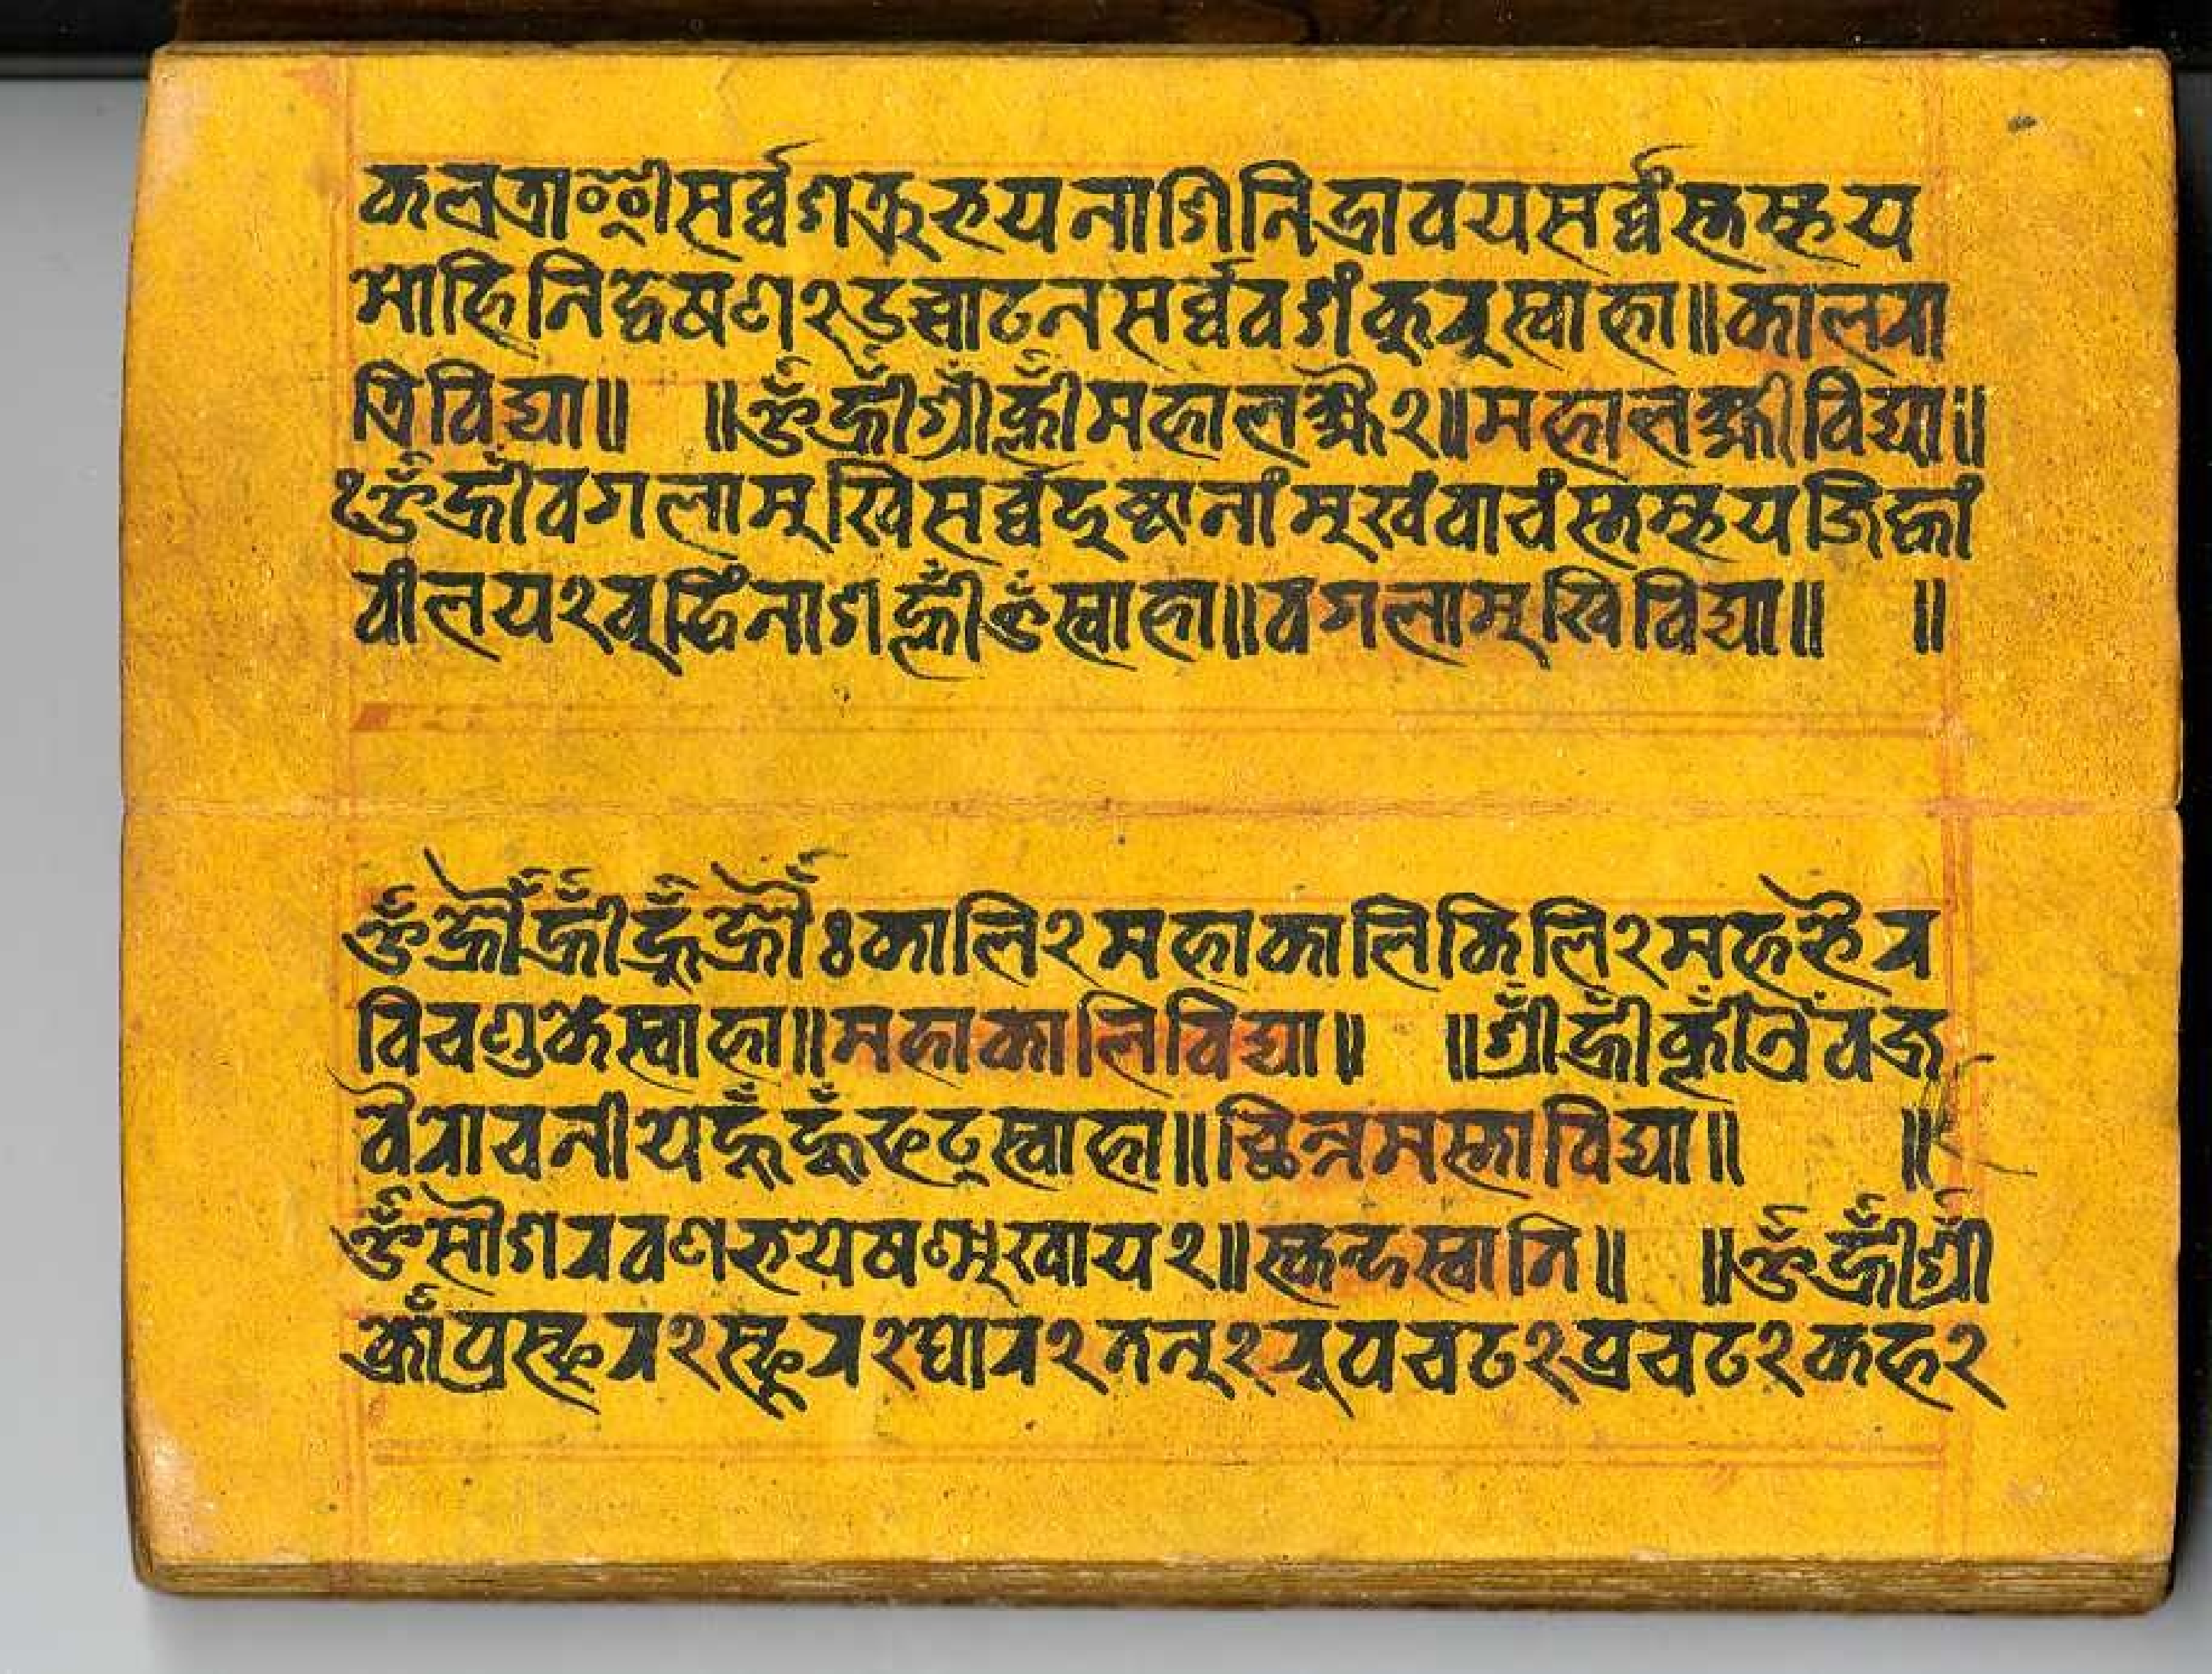 कलत्राॐ्रीसर्व्वशत्रुभयनाशिनिद्रावयसर्व्वंस्तम्भय
मोहिनिद्वेषण२उच्चाटनसर्व्ववशंकुरुस्वाहा॥कालरा
त्रिविद्या॥ ॥ॐह्रीँश्रीँक्लीँमहालक्ष्मै२॥महालक्ष्मीविद्या॥
ॐह्रीँवगलामुखिसर्व्वदुष्टानांमुखंवाचंस्तम्भयजिह्वां
कीलय२बुद्धिंनाशह्लीँॐस्वाहा॥वगलामुखिविद्या॥ ॥
ॐह्रौँह्रीँह्रूँह्रौँःकालि२महाकालिकिलि२महभैर
विचण्डकेस्वाहा॥महाकालिविद्या॥ ॥श्रीँह्रीँक्लीँऐंवज्र
वैरोचनीयेहूँहूँफट्स्वाहा॥छिन्नमस्ताविद्या॥ ॥
ॐसौशरवणभयेषण्मुखाय२॥स्कन्दस्वानि॥ ॥ॐह्रीँश्रीँ
क्रोँप्रस्फुर२स्फुर२घोर२तनु२रूपचट२प्रचट२कह२